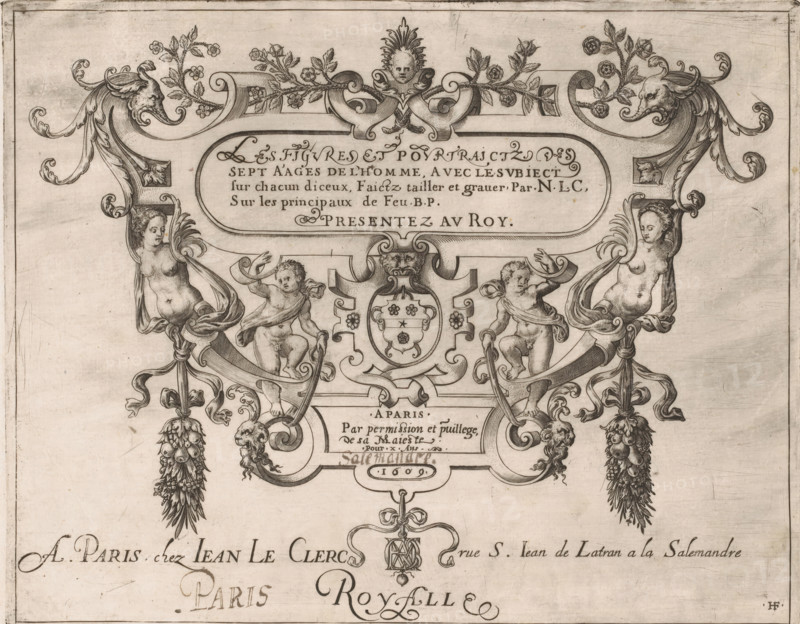 LES FIGVRES ET POVRTRAICTZ DES
SEPT AAGES DE L'HOMME, AVEC LE SVBIECT
sur chacun diceux, Faictz tailler et grauer. Par. N. L. C,
Sur les principaux de Feu. B. P.
PRESENTEZ AV ROY.
·APARIS·
Par permission et puillege,
de sa Maieste
·pour·x·Ans·
Salemandre.
·1609·
A. PARIS. chez IEAN LE CLERC rue S. Iean de Latran a la Salemandre
PARIS ROYALLE
·HF·